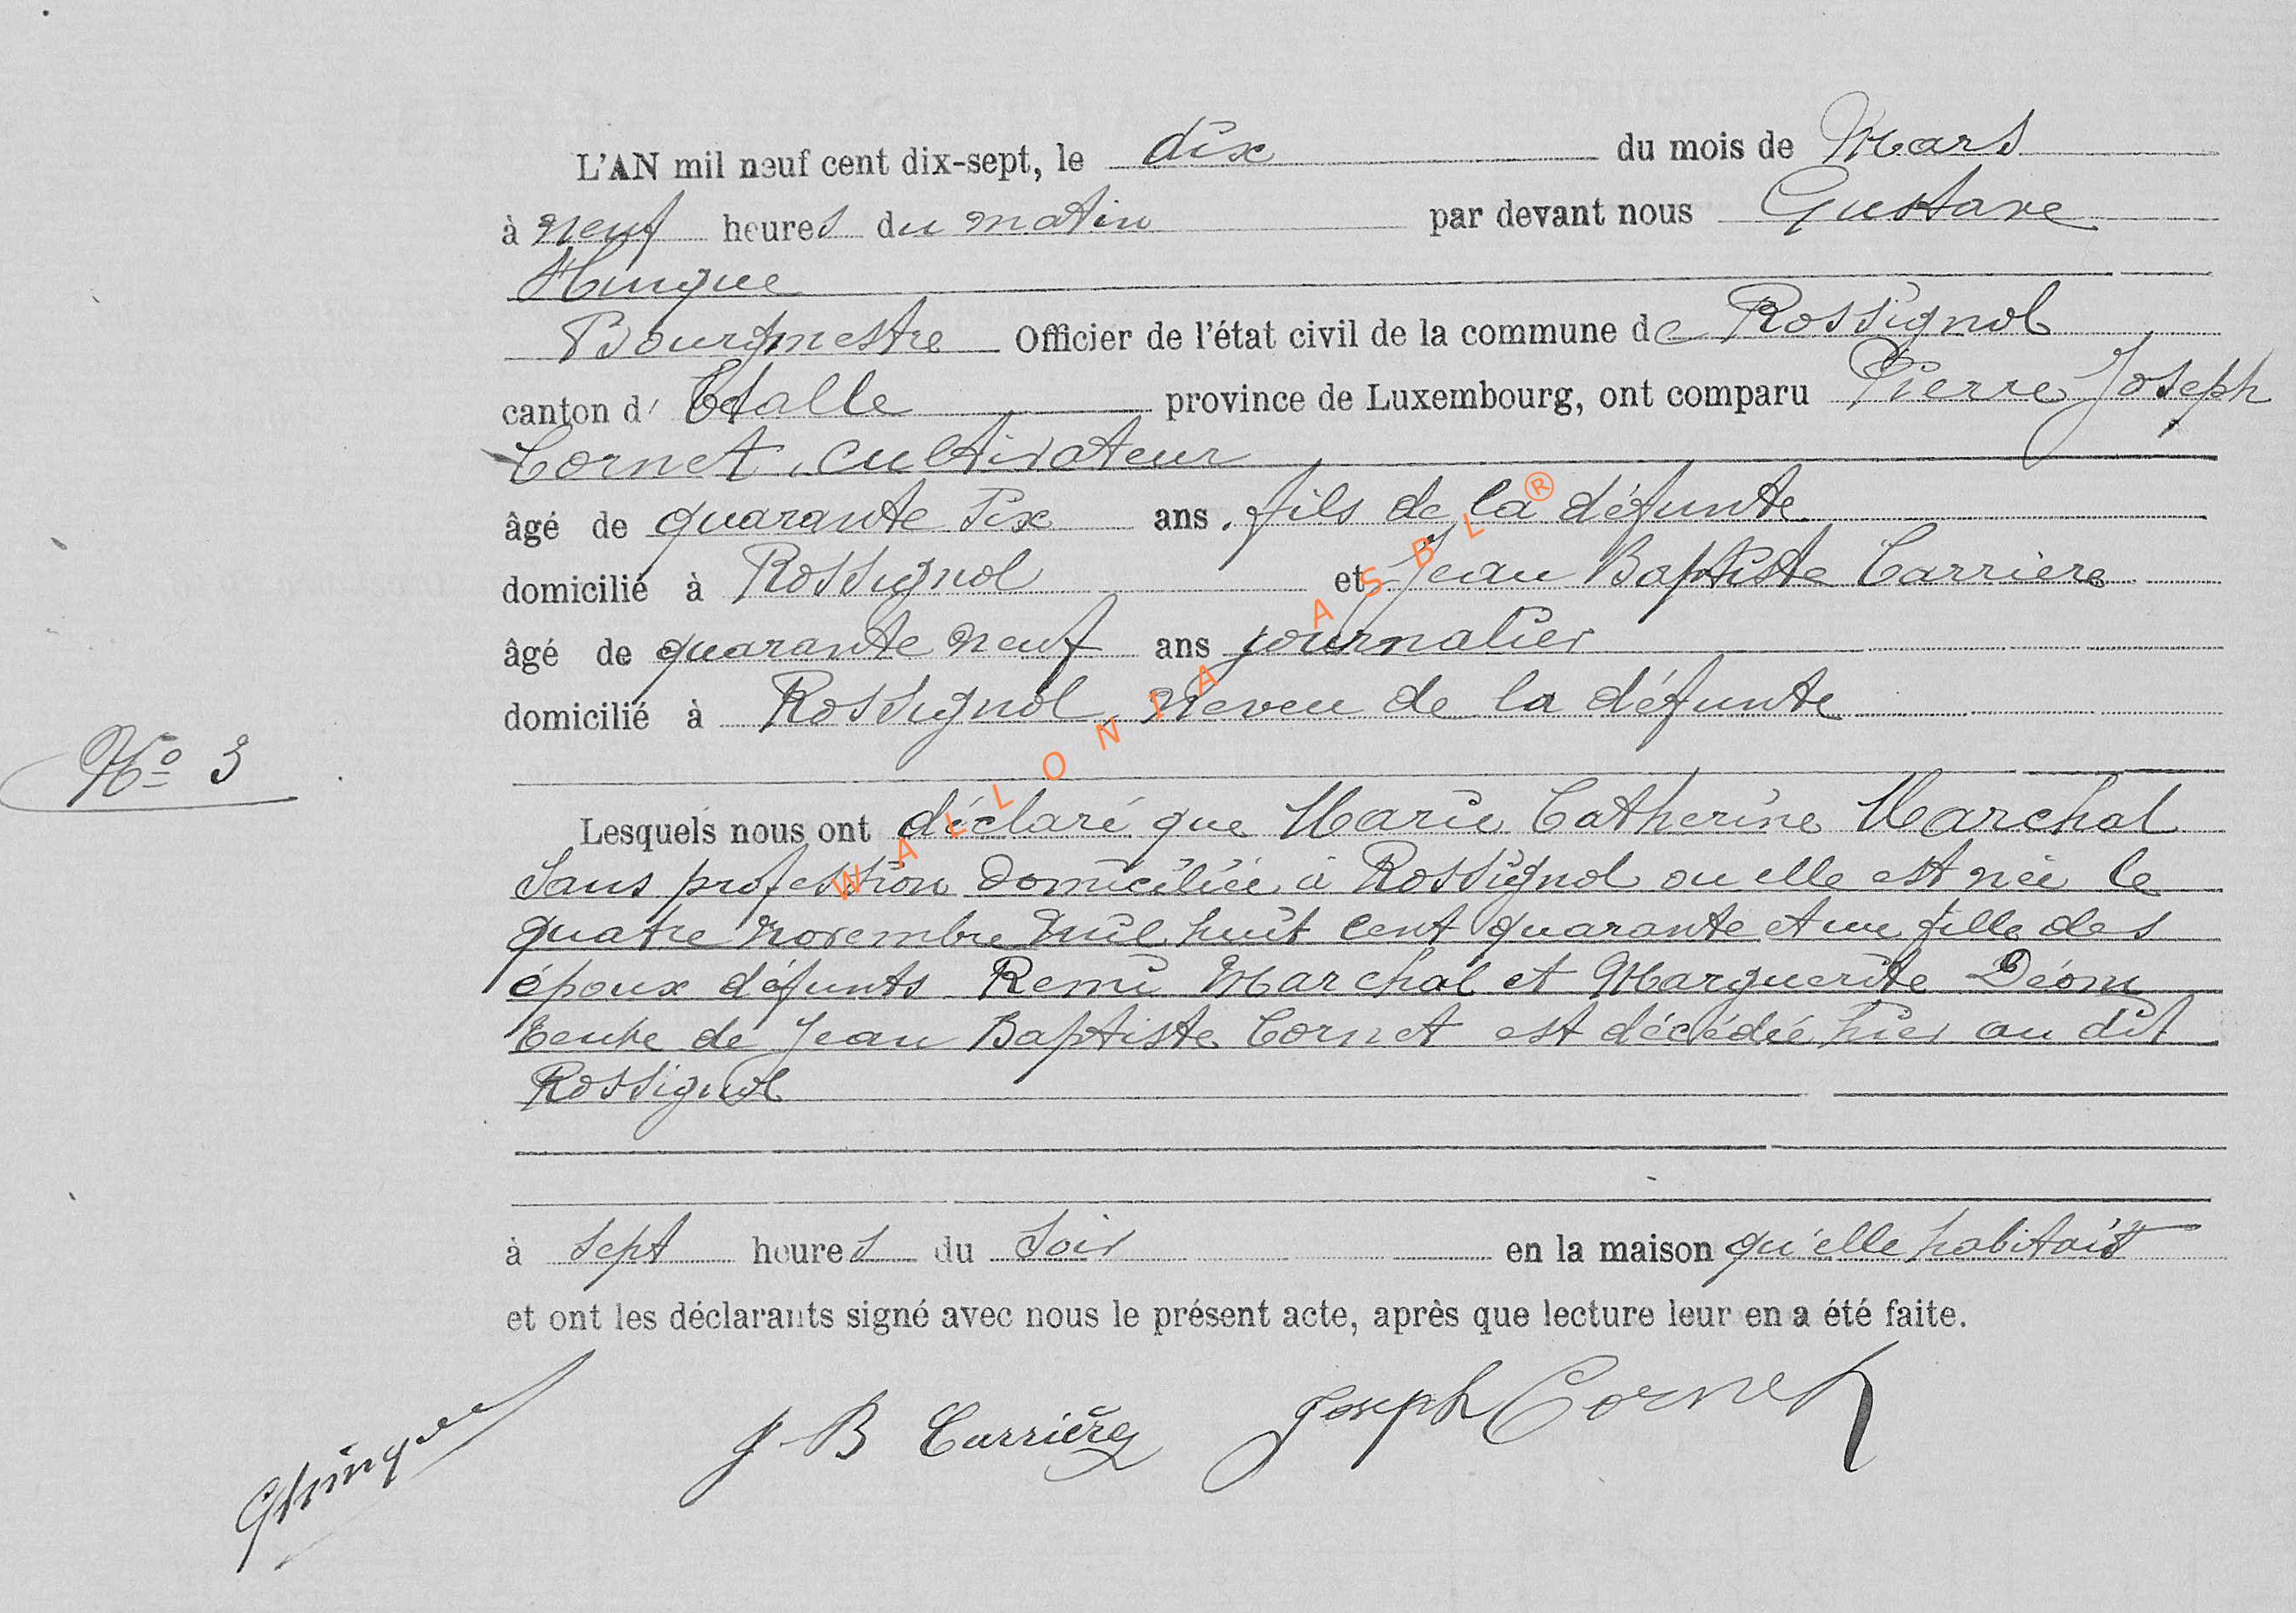 L'AN mil neuf cent dix-sept, le dix du mois de Mars
à neuf heures du matin par devant nous Gustave
Hurique
Bourgmestre Officier de l'état civil de la commune de Rossignol
canton d' Etalle province de Luxembourg, ont comparu Pierre Joseph
Cornet, cultivateur
âgé de quarante six ans, fils de la défunte
domicilié à Rossignol et Jean Baptiste Carrière
âgé de quarante neuf ans journalier
domicilié à Rossignol, neveu de la défunte
No 3
Lesquels nous ont déclaré que Marie Catherine Marchal
sans profession domiciliée à Rossignol ou elle est née le
quatre novembre mil huit cent quarante et un fille des
époux défunts Remi Marchal et Marguerite Déom
veuve de Jean Baptiste Cornet est décédée hier au dit
Rossignol
à sept heures du soir en la maison qu'elle habitait
et ont les déclarants signé avec nous le présent acte, après que lecture leur en a été faite.
J B Carrière Joseph Cornet
WALLONIA ASBL ®